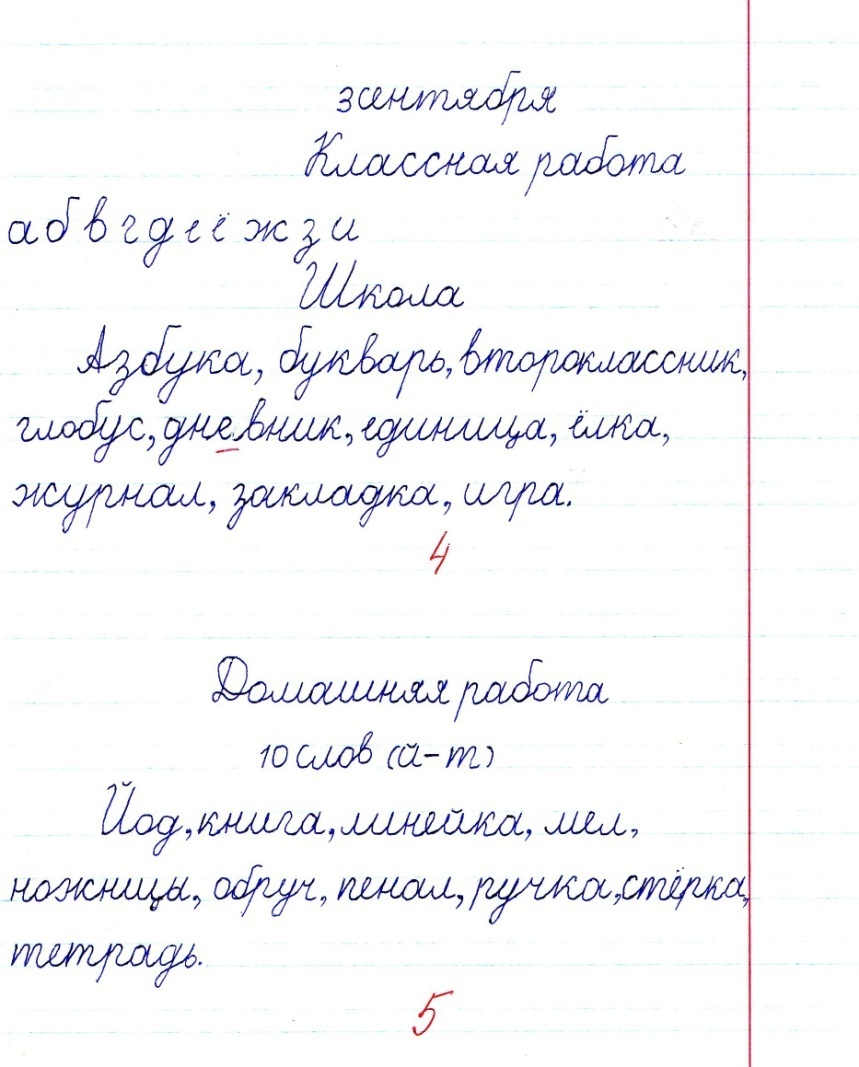 3 сентября
Классная работа
а б в г д е ё ж з и
Школа
Азбука, букварь, второклассник,
глобус, дневник, единица, ёлка,
журнал, закладка, игра.
4
Домашняя работа
10 слов (й-т)
Йод, книга, линейка, мел,
ножницы, обруч, пенал, ручка, стёрка,
тетрадь.
5